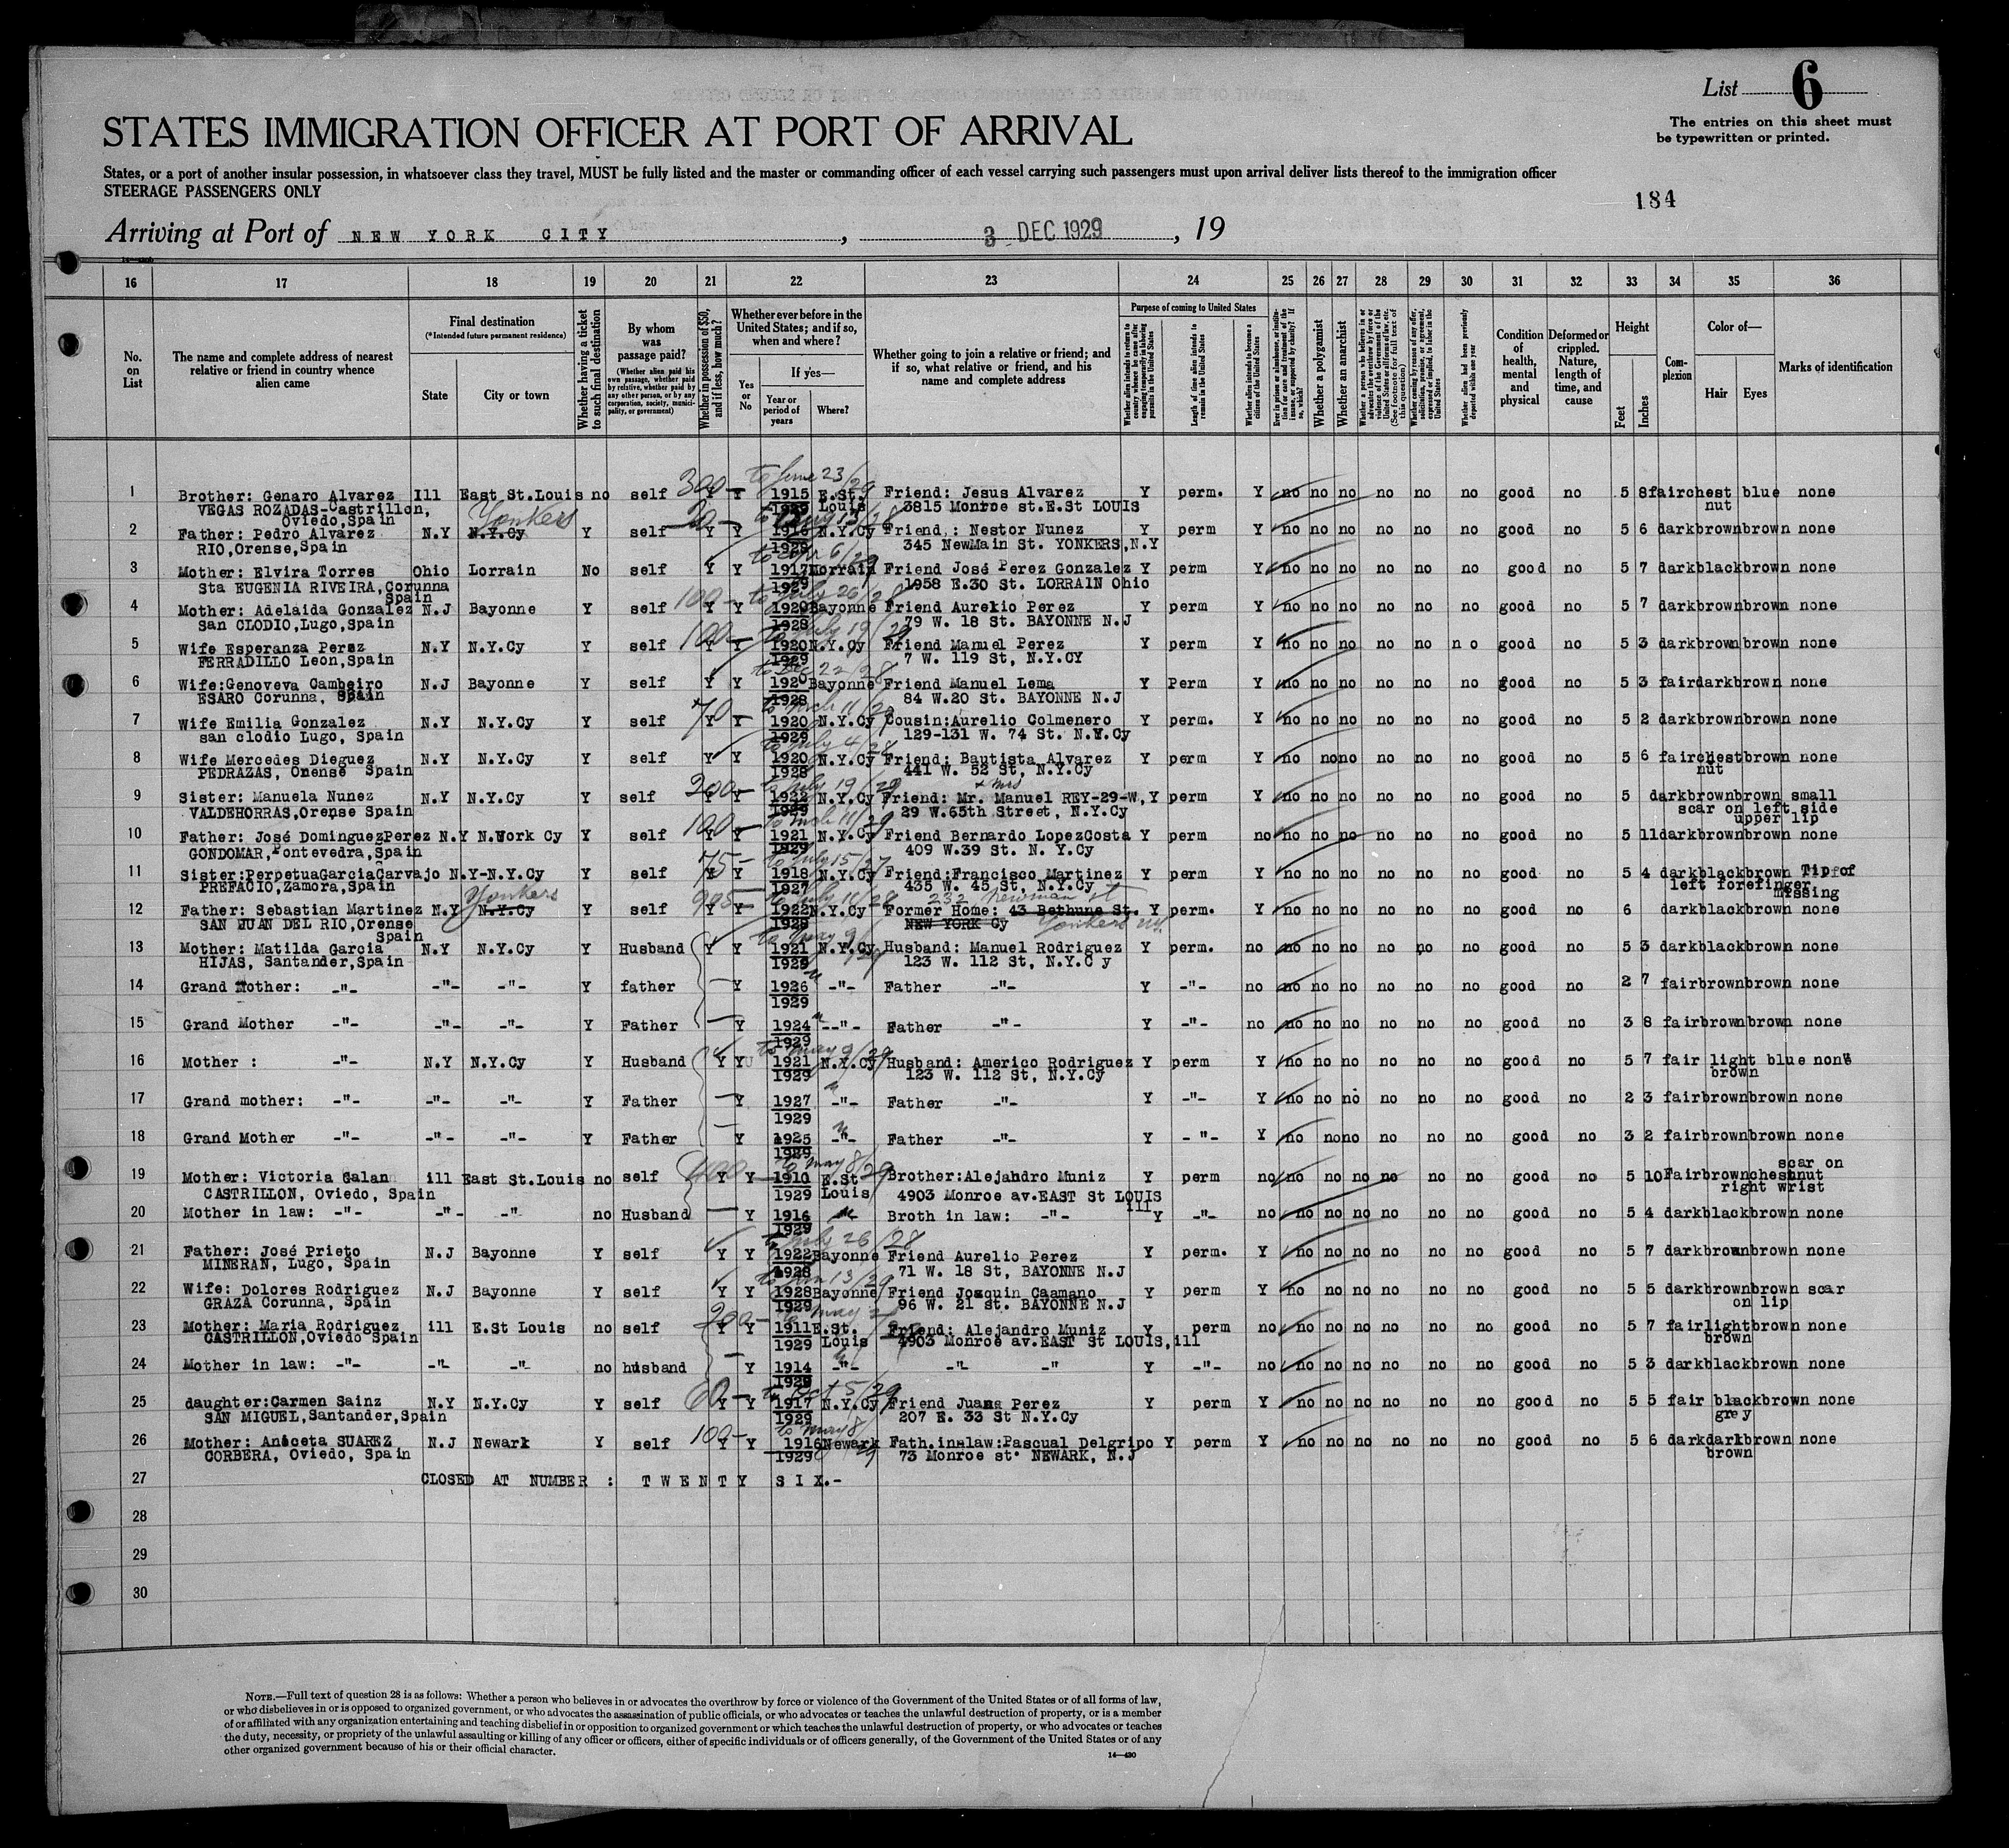 List 6
The entries on this sheet must
be typewritten or printed.
STATES IMMIGRATION OFFICER AT PORT OF ARRIVAL
States, or a port of another insular possession, in whatsoever class they travel, MUST be fully listed and the master or commanding officer of each vessel carrying such passengers must upon arrival deliver lists thereof to the immigration officer
STEERAGE PASSENGERS ONLY
184
Arriving at Port of NEW YORK CITY, 3 DEC 1929, 19
16 17 18 19 20 21 22 23 24 25 26 27 28 29 30 31 32 33 34 35 36
No. on List
The name and complete address of nearest relative or friend in country whence alien came
Final destination
(*Intended future permanent residence)
State
City or town
Whether having a ticket to such final destination
By whom was passage paid?
(Whether alien paid his own passage, whether paid by relative, whether paid by any other person, or by any corporation, society, municipality, or government)
Whether in possession of $50, and if less, how much?
Whether ever before in the United States; and if so, when and where?
Yes or No
If yes—
Year or period of years
Where?
Whether going to join a relative or friend; and if so, what relative or friend, and his name and complete address
Purpose of coming to United States
Whether alien intends to return to country whence he came after engaging temporarily in laboring pursuits in the United States
Length of time alien intends to remain in the United States
Whether alien intends to become a citizen of the United States
Whether a polygamist
Whether an anarchist
Condition of health, mental and physical
Deformed or crippled. Nature, length of time, and cause
Height
Feet
Inches
Complexion
Color of—
Hair
Eyes
Marks of identification
1 Brother: Genaro Alvarez Ill East St.Louis no self 300 Y Y 1915 E.St. Friend: Jesus Alvarez Y perm. Y no no no no no no good no 5 8 fair chest blue none
VEGAS ROZADAS-Castrillon, 1929 Louis 3815 Monroe st.E.St LOUIS nut
Oviedo,Spain
Yonkers
2 Father: Pedro Alvarez N.Y N.Y.Cy Y self Y Y 1916 N.Y.Cy Friend,: Nestor Nunez Y perm Y no no no no no no good no 5 6 dark brown brown none
RIO,Orense,Spain 345 NewMain St. YONKERS,N.Y
3 Mother: Elvira Torres Ohio Lorrain No self Y Y 1917 Lorrain Friend José Perez Gonzalez Y perm Y no no no no no no good no 5 7 dark black brown none
Sta EUGENIA RIVEIRA,Corunna 1929 1958 E.30 St. LORRAIN Ohio
Spain
4 Mother: Adelaida Gonzalez N.J Bayonne Y self 100 Y Y 1920 Bayonne Friend Aurelio Perez Y perm Y no no no no no no good no 5 7 dark brown brown none
san CLODIO,Lugo,Spain 1928 79 W. 18 St. BAYONNE N.J
5 Wife Esperanza Perez N.Y N.Y.Cy Y self 100 Y Y 1920 N.Y.Cy Friend Manuel Perez Y perm Y no no no no no n o good no 5 3 dark brown brown none
FERRADILLO Leon,Spain 1929 7 W. 119 St, N.Y.CY
6 Wife:Genoveva Cambeiro N.J Bayonne Y self Y Y 1920 Bayonne Friend Manuel Lema Y Perm Y no no no no no no good no 5 3 fair dark brown none
ESARO Corunna, Spain 1928 84 W.20 St. BAYONNE N.J
7 Wife Emilia Gonzalez N.Y N.Y.Cy Y self 70 Y Y 1920 N.Y.Cy Cousin:Aurelio Colmenero Y perm. Y no no no no no no good no 5 2 dark brown brown none
san clodio Lugo, Spain 1929 129-131 W. 74 St. N.Y.Cy
8 Wife Mercedes Dieguez N.Y N.Y.Cy Y self Y Y 1920 N.Y.Cy Friend: Bautista Alvarez Y perm Y no no no no no no good no 5 6 fair chest brown none
PEDRAZAS, Orense Spain 1928 441 W. 52 St, N.Y.Cy nut
9 Sister: Manuela Nunez N.Y N.Y.Cy Y self 200 Y Y 1922 N.Y.Cy Friend: Mr. + mrs Manuel REY-29-W, Y perm Y no no no no no no good no 5 dark brown brown small
VALDEHORRAS,Orense Spain 1929 29 W.65th Street, N.Y.Cy scar on left side
upper lip
10 Father: José DominguezPerez N.Y N.York Cy Y self 100 Y Y 1921 N.Y.Cy Friend Bernardo LopezCosta Y perm no no no no no no no good no 5 11 dark brown brown none
GONDOMAR,Pontevedra,Spain 1929 409 W.39 St. N. Y.Cy
11 Sister:PerpetuaGarciaCarvajo N.Y-N.Y.Cy Y self 75 Y Y 1918 N.Y.Cy Friend:Francisco Martinez Y perm Y no no no no no no good no 5 4 dark black brown Tip of
PREFACIO,Zamora,Spain 1927 435 W. 45 St, N.Y.Cy left forefinger
missing
Yonkers 232 Newman st
12 Father: Sebastian Martinez N.Y N.Y.Cy Y self Y Y 1922 N.Y.Cy Former Home: 43 Bethune St. Y perm. Y no no no no no no good no 6 dark black brown none
SAN JUAN DEL RIO,Orense NEW YORK Cy Yonkers
Spain
13 Mother: Matilda Garcia N.Y N.Y.Cy Y Husband Y Y 1921 N.Y.Cy Husband: Manuel Rodriguez Y perm. no no no no no no no good no 5 3 dark black brown none
HIJAS, Santander,Spain 1929 123 W. 112 St, N.Y.C y
14 Grand Mother: -"- -"- -"- Y father Y 1926 -"- Father -"- Y -"- no no no no no no no good no 2 7 fair brown brown none
1929
15 Grand Mother -"- -"- -"- Y Father Y 1924 --"- Father -"- Y -"- no no no no no no no good no 3 8 fair brown brown none
1929
16 Mother : -"- N.Y N.Y.Cy Y Husband Y Y 1921 N.Y.Cy Husband: Americo Rodriguez Y perm Y no no no no no no good no 5 7 fair light blue none
1929 123 W. 112 St, N.Y.Cy brown
17 Grand mother: -"- -"- -"- Y Father Y 1927 -"- Father -"- Y -"- Y no no no no no no good no 2 3 fair brown brown none
1929
18 Grand Mother -"- -"- -"- Y Father Y 1925 -"- Father -"- Y - "- Y no no no no no no good no 3 2 fair brown brown none
1929
19 Mother: Victoria Galan ill East St.Louis no self 400 Y Y 1910 E.St Brother:Alejandro Muniz Y perm no no no no no no no good no 5 10 Fair brown chestnut scar on
CASTRILLON, Oviedo, Spain 1929 Louis 4903 Monroe av.EAST St LOUIS right wrist
Ill
20 Mother in law: -"- -"- -"- no Husband Y 1916 Broth in law: -"- Y -"- no no no no no no no good no 5 4 dark black brown none
1929
21 Father: José Prieto N.J Bayonne Y self Y Y 1922 Bayonne Friend Aurelio Perez Y perm. Y no no no no no no good no 5 7 dark brown brown none
MINERAN, Lugo, Spain 1928 71 W. 18 St, BAYONNE N.J
22 Wife: Dolores Rodriguez N.J Bayonne Y self Y Y 1928 Bayonne Friend Joaquin Caamano Y perm Y no no no no no no good no 5 5 dark brown brown scar
GRAZA Corunna, Spain 1929 96 W. 21 st. BAYONNE N.J on lip
23 Mother: Maria Rodriguez ill E.St Louis no self 200 Y Y 1911 E.St. Friend: Alejandro Muniz Y perm no no no no no no no good no 5 7 fair light brown none
CASTRILLON,Oviedo Spain 1929 Louis 4903 Monroe av.EAST St LOUIS,ill brown
24 Mother in law: -"- -"- -"- no husband Y 1914 -"- -"- -" Y -"- no no no no no no no good no 5 3 dark black brown none
1929
25 daughter:Carmen Sainz N.Y N.Y.Cy Y self 60 Y Y 1917 N.Y.Cy Friend Juana Perez Y perm Y no no no no no no good no 5 5 fair black brown none
SAN MIGUEL,Santander,Spain 1929 207 E. 33 St N.Y.Cy grey
26 Mother: Aniceta SUAREZ N.J Newark Y self 100 Y Y 1916 Newark Fath.in-law:Pascual Delgripo Y perm Y no no no no no no good no 5 6 dark dark brown none
CORBERA, Oviedo, Spain 1929 73 Monroe st. NEWARK, N.J brown
27 CLOSED AT NUMBER : TWENTY SIX.-
28
29
30
NOTE.—Full text of question 28 is as follows: Whether a person who believes in or advocates the overthrow by force or violence of the Government of the United States or of all forms of law,
or who disbelieves in or is opposed to organized government, or who advocates the assassination of public officials, or who advocates or teaches the unlawful destruction of property, or is a member
of or affiliated with any organization entertaining and teaching disbelief in or opposition to organized government or which teaches the unlawful destruction of property, or who advocates or teaches
the duty, necessity, or propriety of the unlawful assaulting or killing of any officer or officers, either of specific individuals or of officers generally, of the Government of the United States or of any
other organized government because of his or their official character.
14—430